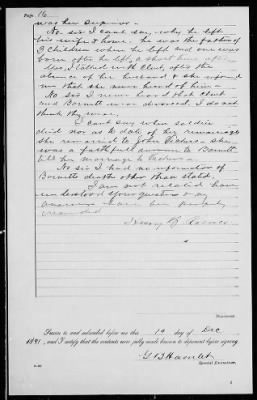 Page 16
was her superior.
No sir I cant say why he left
his wife & home. he was the father of
3 Children when he left and one was
born after he left, a short time after
absence of her husband & she informed
me that she never heard of him
No sir I never heard that
and Barnett was divorced. I do not
think they were.
I cant say when soldier
died nor as to date of her remarriage
she remarried to John
was a faithful woman to Barnett
till her marriage to
No sir I had no information of
Barnetts death other than stated.
I am not related have
understood your questions & my
answers have been properly
recorded
Henry
Deponent.
Sworn to and subscribed before me this 19 day of Dec
1891, and I certify that the contents were fully made known to deponent before signing.
G B Hamlet
Special Examiner.